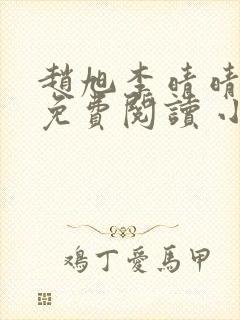 趙旭李晴晴
免費閱讀小
鴻丁愛馬甲